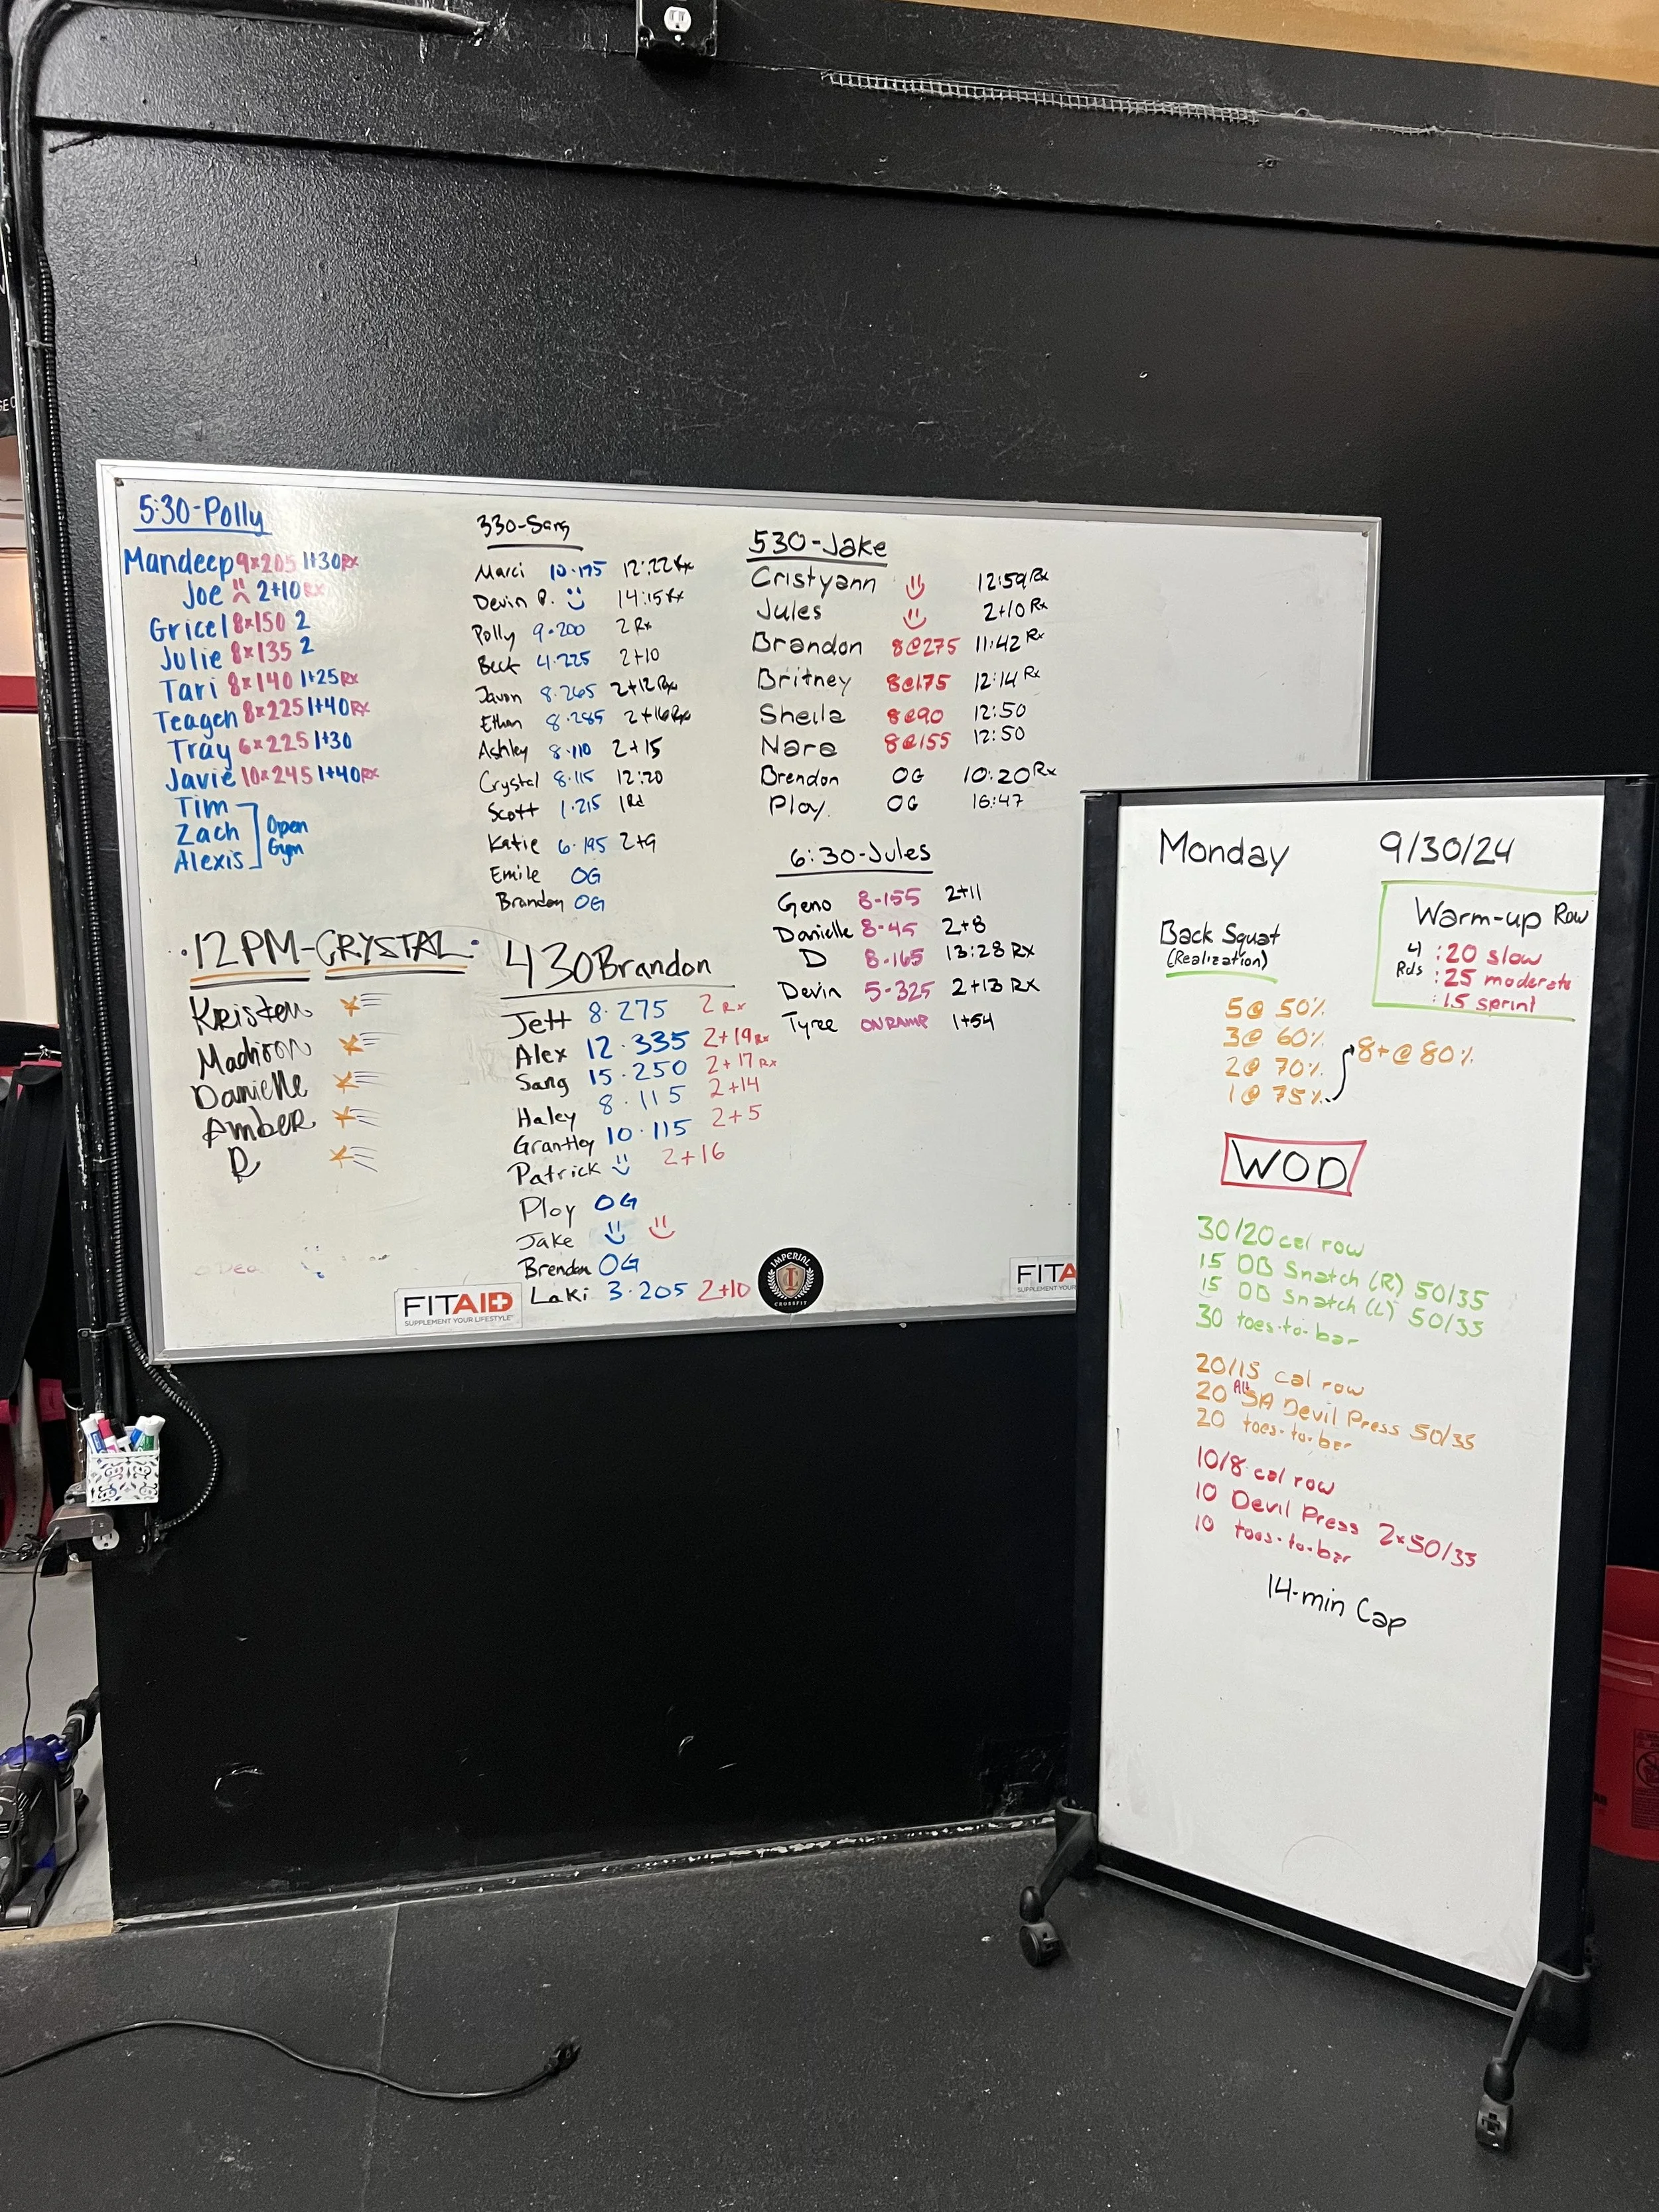 5:30-Polly
Mandeep 9x205 1+30 Rx
Joe 2+10 Rx
Gricel 8x150 2
Julie 8x135 2
Tari 8x140 1+25 Rx
Teagen 8x225 1+40 Rx
Tray 6x225 1+30
Javie 10x245 1+40 Rx
Tim
Zach
Alexis
Open
Gym
12PM-CRYSTAL
Kristen
Madison
Danielle
Amber
R
330-Sang
Marci 10·175 12:22 Rx
Devin P. 14:15 Rx
Polly 9·200 2 Rx
Beck 4·225 2+10
Javon 8·265 2+12 Rx
Ethan 8·285 2+16 Rx
Ashley 8·110 2+15
Crystal 8·115 12:20
Scott 1·215 1Rd
Katie 6·195 2+9
Emile OG
Brandon OG
430 Brandon
Jett 8·275 2 Rx
Alex 12·335 2+19 Rx
Sang 15·250 2+17 Rx
Haley 8·115 2+14
Grantley 10·115 2+5
Patrick 2+16
Ploy OG
Jake
Brendon OG
Laki 3·205 2+10
530-Jake
Cristyann 12:59 Rx
Jules 2+10 Rx
Brandon 8@275 11:42 Rx
Britney 8@175 12:14 Rx
Sheila 8@90 12:50
Nara 8@155 12:50
Brendon OG 10:20 Rx
Ploy OG 16:47
6:30-Jules
Geno 8-155 2+11
Danielle 8-45 2+8
D 8-165 13:28 Rx
Devin 5-325 2+13 Rx
Tyree ONRAMP 1+54
FITAID
SUPPLEMENT YOUR LIFESTYLE
IMPERIAL
CROSSFIT
FITA
SUPPLEMENT YOUR
Monday 9/30/24
Warm-up Row
4 Rds
:20 slow
:25 moderate
:15 sprint
Back Squat
(Realization)
5@ 50%
3@ 60%
2@ 70%
1@ 75%
8+@ 80%
WOD
30/20 cal row
15 DB Snatch (R) 50/35
15 DB Snatch (L) 50/35
30 toes-to-bar
20/15 cal row
20 Alt SA Devil Press 50/35
20 toes-to-bar
10/8 cal row
10 Devil Press 2x50/35
10 toes-to-bar
14-min Cap